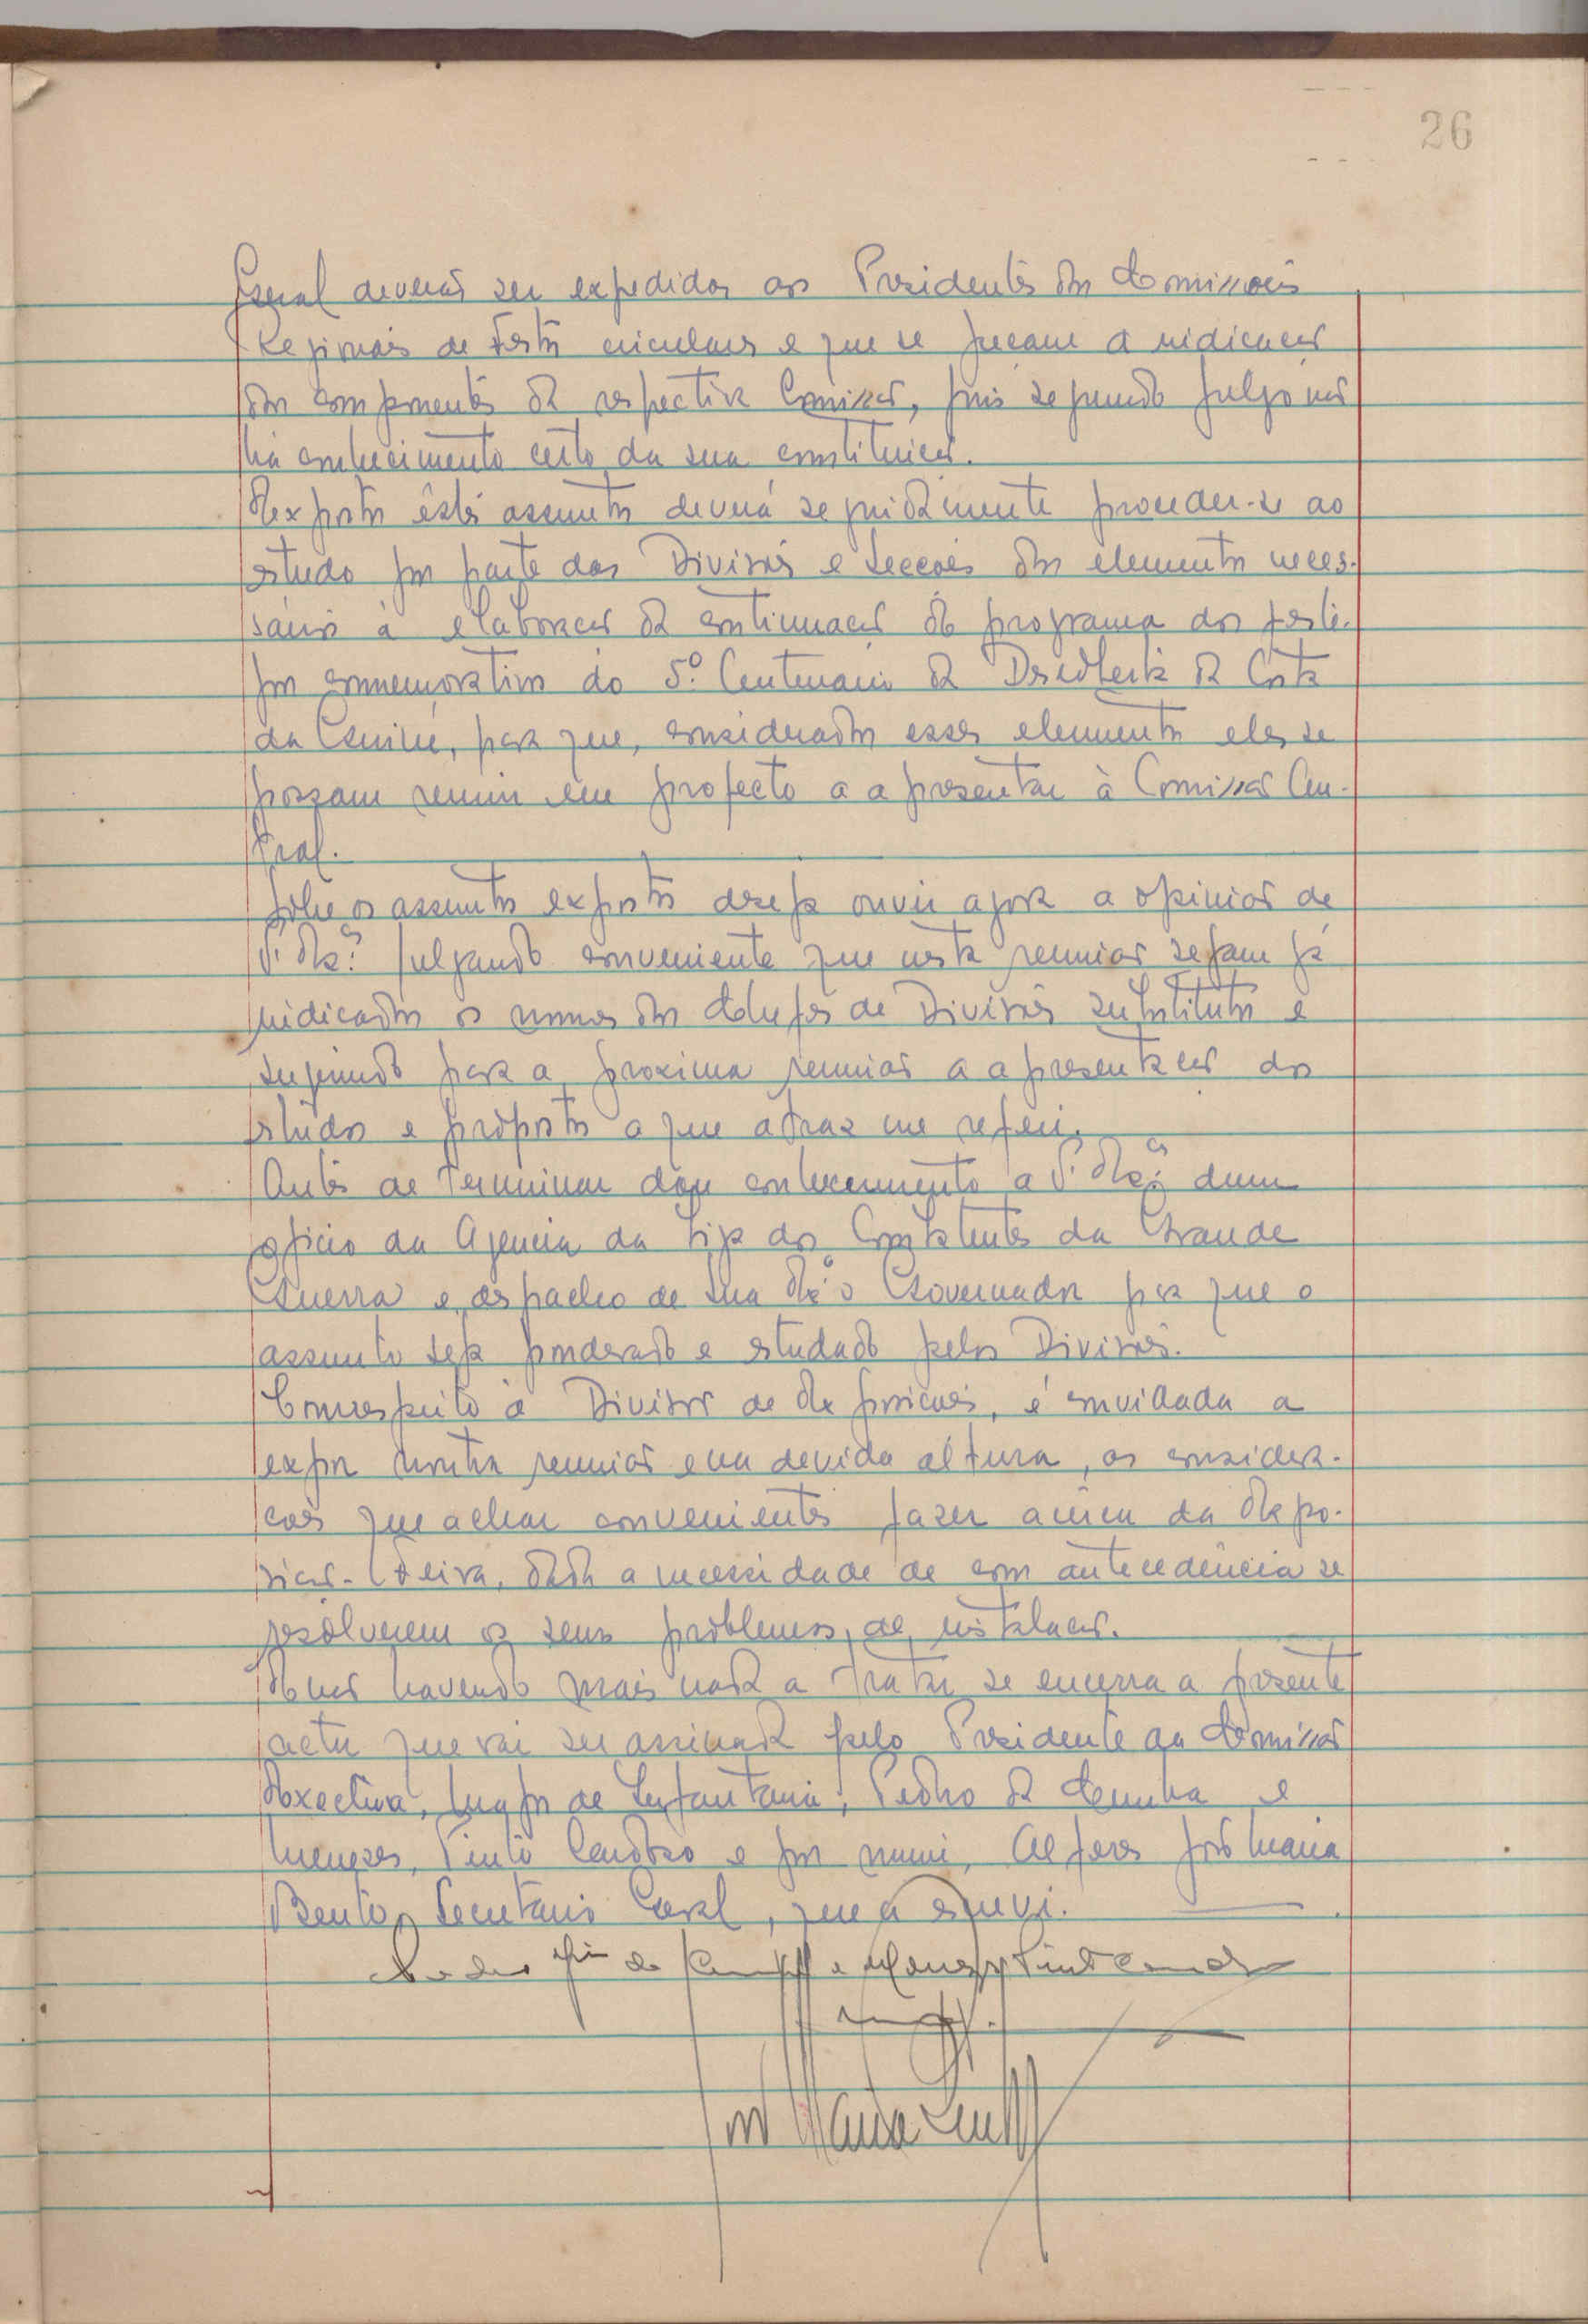 26
Geral deverão ser expedidos aos Presidentes das Comissões
Regionais de Festas circulares e que se peçam a indicação
dos componentes da respectiva Comissão, pois segundo julgo não
há conhecimento certo da sua constituição.
Expostos êstes assuntos deverá seguidamente proceder-se ao
estudo por parte das Divisões e Secções dos elementos neces-
sários à elaboração da continuação do programa dos feste-
jos comemorativos do 5.º Centenario da Descoberta da Costa
da Guiné, para que, considerados esses elementos eles se
possam reunir em projecto a apresentar à Comissão Cen-
tral.
Sobre os assuntos expostos deseja ouvir agora a opinião de
V. Ex.as julgando conveniente que nesta reunião sejam já
indicados os nomes dos Chefes de Divisões substitutos e
sugerindo para a proxima reunião a apresentação dos
estudos e propostas a que atraz me referi.
Antes de terminar dou conhecimento a V. Ex.as dum
oficio da Agencia da Liga dos Combatentes da Grande
Guerra e despacho de Sua Ex.a o Governador para que o
assunto seja ponderado e estudado pelas Divisões.
Com respeito à Divisão de Exposições, é convidada a
expor noutra reunião e na devida altura, as considera-
ções que achar convenientes fazer àcêrca da Expo-
sição-Feira, dada a necessidade de com antecedência se
resolverem os seus problemas de instalação.
E não havendo mais nada a tratar se encerra a presente
acta que vai ser assinada pelo Presidente da Comissão
Executiva, Major de Infantaria, Pedro da Cunha e
Menezes, Pinto Cardoso e por mim, Alferes José Maria
Bento, Secretario Geral, que a escrevi.
Pedro da Cunha e Menezes Pinto Cardoso
Major.
José Maria Bento